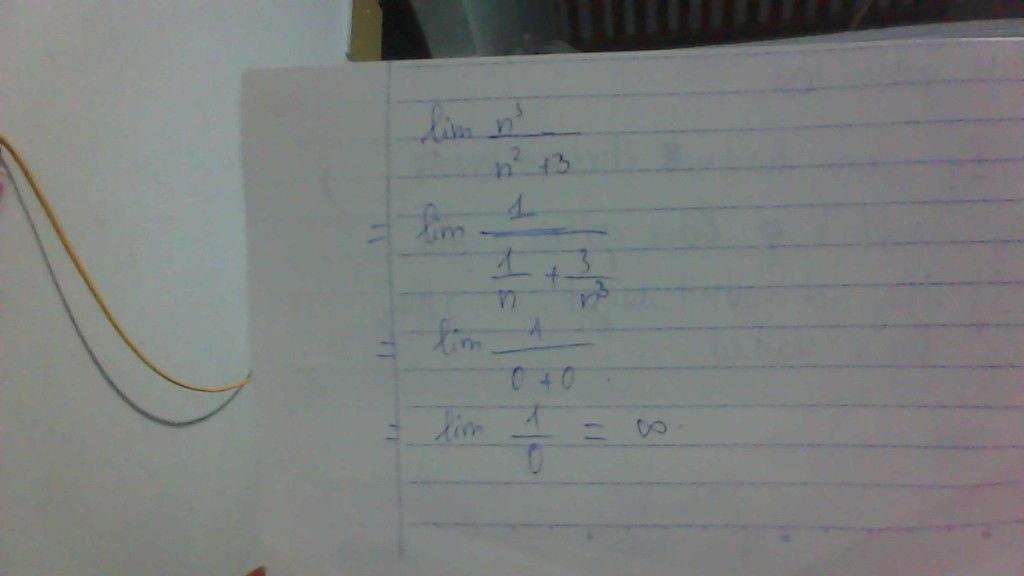 lim n³ / n² + 3
= lim 1 / 1/n + 3/n³
= lim 1 / 0 + 0
= lim 1/0 = ∞